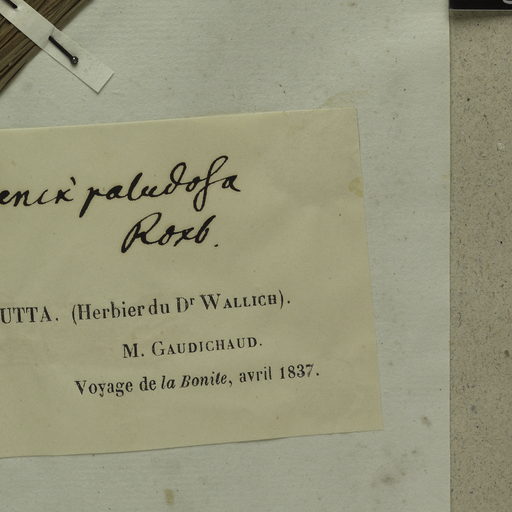 enix paludosa
Roxb.
UTTA. (Herbier du Dr WALLICH).
M. GAUDICHAUD.
Voyage de la Bonite, avril 1837.